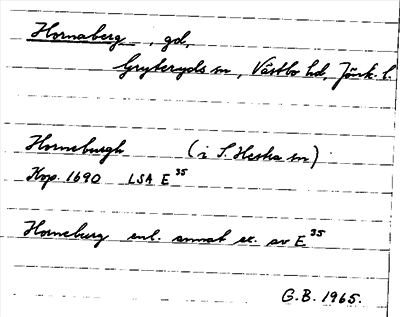 Hornaberg, gd,
Gryteryds sn, Västbo hd, Jönk. l.
Horneburgh (i S. Hestra sn)
Kop. 1690 LSA E 35
Horneburg enl. annat ex. av E 35
G.B. 1965.